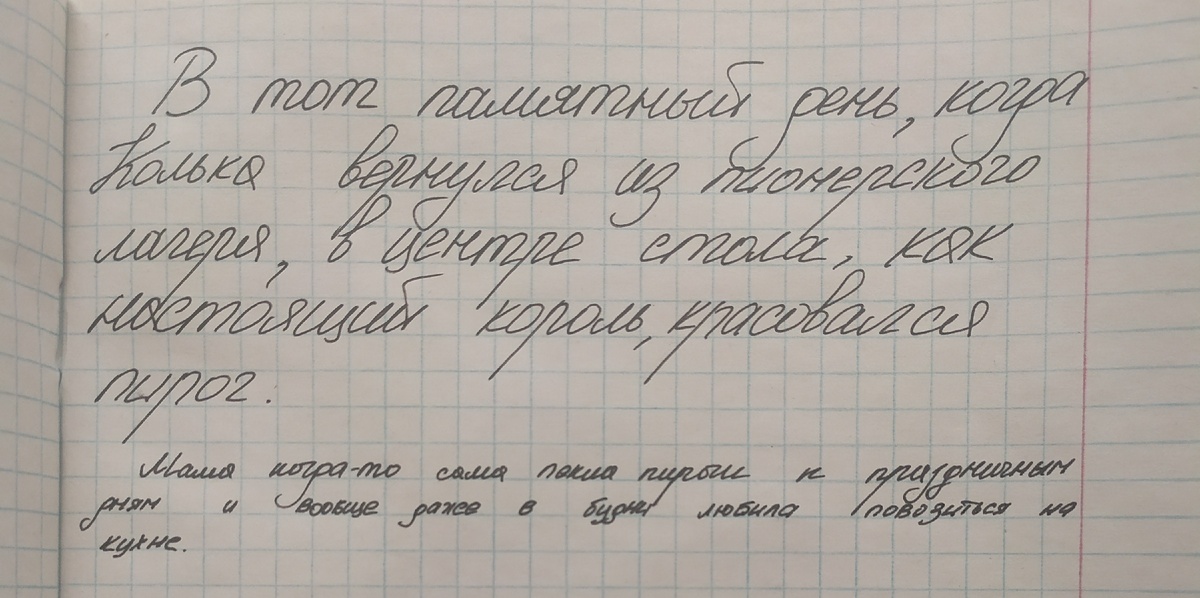 В тот памятный день, когда
Колька вернулся из пионерского
лагеря, в центре стола, как
настоящий король, красовался
пирог.
Мама когда-то сама пекла пироги к праздничным
дням и вообще даже в будни любила повозиться на
кухне.